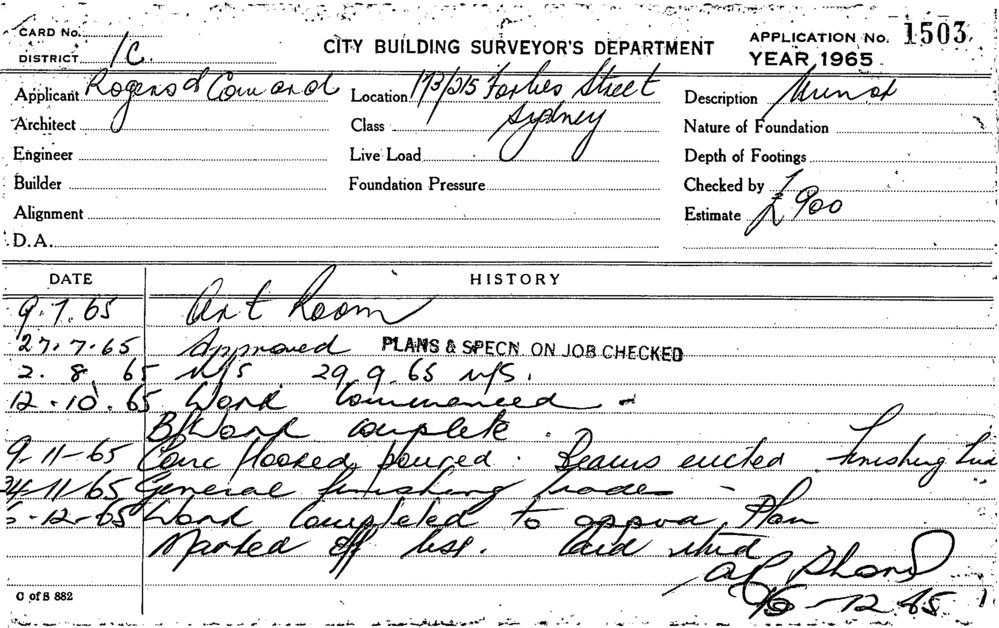 CARD No.
CITY BUILDING SURVEYOR'S DEPARTMENT
APPLICATION No. 1503
DISTRICT 1C.
YEAR 1965
Applicant Rogers & Conrad
Location 173/215 Forbes Street
Sydney
Description Minor
Architect
Class
Nature of Foundation
Engineer
Live Load
Depth of Footings
Builder
Foundation Pressure
Checked by
Alignment
Estimate £900
D.A.
DATE HISTORY
9.7.65 Art Room
27.7.65 Approved PLANS & SPECN. ON JOB CHECKED
2.8.65 N/S 29.9.65 N/S.
12.10.65 Work Commenced
B/Work complete
9-11-65 Conc floored poured. Beams erected. Finishing
24-11-65 General finishing trades
-12-65 Work Completed to Plan
Marked off list. Card
-12 65
C of S 882